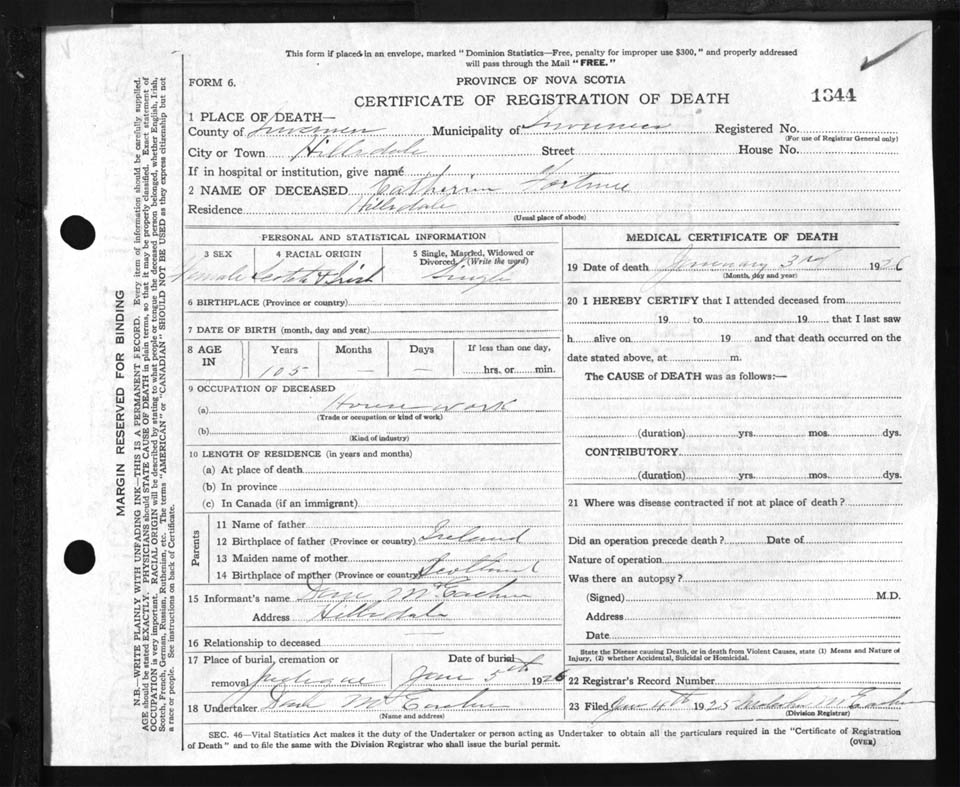 This form if placed in an envelope, marked "Dominion Statistics—Free, penalty for improper use $300," and properly addressed
will pass through the Mail "FREE."
FORM 6.
PROVINCE OF NOVA SCOTIA
CERTIFICATE OF REGISTRATION OF DEATH
1344
MARGIN RESERVED FOR BINDING
N.B.—WRITE PLAINLY WITH UNFADING INK—THIS IS A PERMANENT RECORD. Every item of information should be carefully supplied.
AGE should be stated EXACTLY. PHYSICIANS should STATE CAUSE OF DEATH in plain terms, so that it may be properly classified. Exact statement of
OCCUPATION is very important. RACIAL ORIGIN will be described by stating to what people or tongue the deceased person belonged, whether English, Irish,
Scotch, French, German, Russian, Ruthenian, etc. The terms "AMERICAN" or "CANADIAN" SHOULD NOT BE USED as they express citizenship but not
a race or people. See instructions on back of Certificate.
1 PLACE OF DEATH—
County of Inverness Municipality of Inverness Registered No.
(For use of Registrar General only)
City or Town Hillsdale Street House No.
If in hospital or institution, give name
2 NAME OF DECEASED Catherine
Residence Hillsdale
(Usual place of abode)
PERSONAL AND STATISTICAL INFORMATION
3 SEX 4 RACIAL ORIGIN 5 Single, Married, Widowed or
Divorced (Write the word)
Female Scotch & Irish Single
6 BIRTHPLACE (Province or country)
7 DATE OF BIRTH (month, day and year)
8 AGE IN Years Months Days If less than one day,
105 — — hrs. or min.
9 OCCUPATION OF DECEASED
(a) House work
(Trade or occupation or kind of work)
(b)
(Kind of industry)
10 LENGTH OF RESIDENCE (in years and months)
(a) At place of death
(b) In province
(c) In Canada (if an immigrant)
Parents
11 Name of father
12 Birthplace of father (Province or country) Ireland
13 Maiden name of mother
14 Birthplace of mother (Province or country) Scotland
15 Informant's name McEachern
Address Hillsdale
16 Relationship to deceased —
17 Place of burial, cremation or Date of burial
removal Judique Jan 5th 1926
18 Undertaker McEachern
(Name and address)
MEDICAL CERTIFICATE OF DEATH
19 Date of death January 3rd 1926
(Month, day and year)
20 I HEREBY CERTIFY that I attended deceased from
19 to 19 that I last saw
h alive on 19 and that death occurred on the
date stated above, at m.
The CAUSE of DEATH was as follows:—
(duration) yrs. mos. dys.
CONTRIBUTORY
(duration) yrs. mos. dys.
21 Where was disease contracted if not at place of death?
Did an operation precede death? Date of
Nature of operation
Was there an autopsy?
(Signed) M.D.
Address
Date
State the Disease causing Death, or in death from Violent Causes, state (1) Means and Nature of
Injury, (2) whether Accidental, Suicidal or Homicidal.
22 Registrar's Record Number
23 Filed Jan 4th 1925
(Division Registrar)
SEC. 46—Vital Statistics Act makes it the duty of the Undertaker or person acting as Undertaker to obtain all the particulars required in the "Certificate of Registration
of Death" and to file the same with the Division Registrar who shall issue the burial permit.
(OVER)